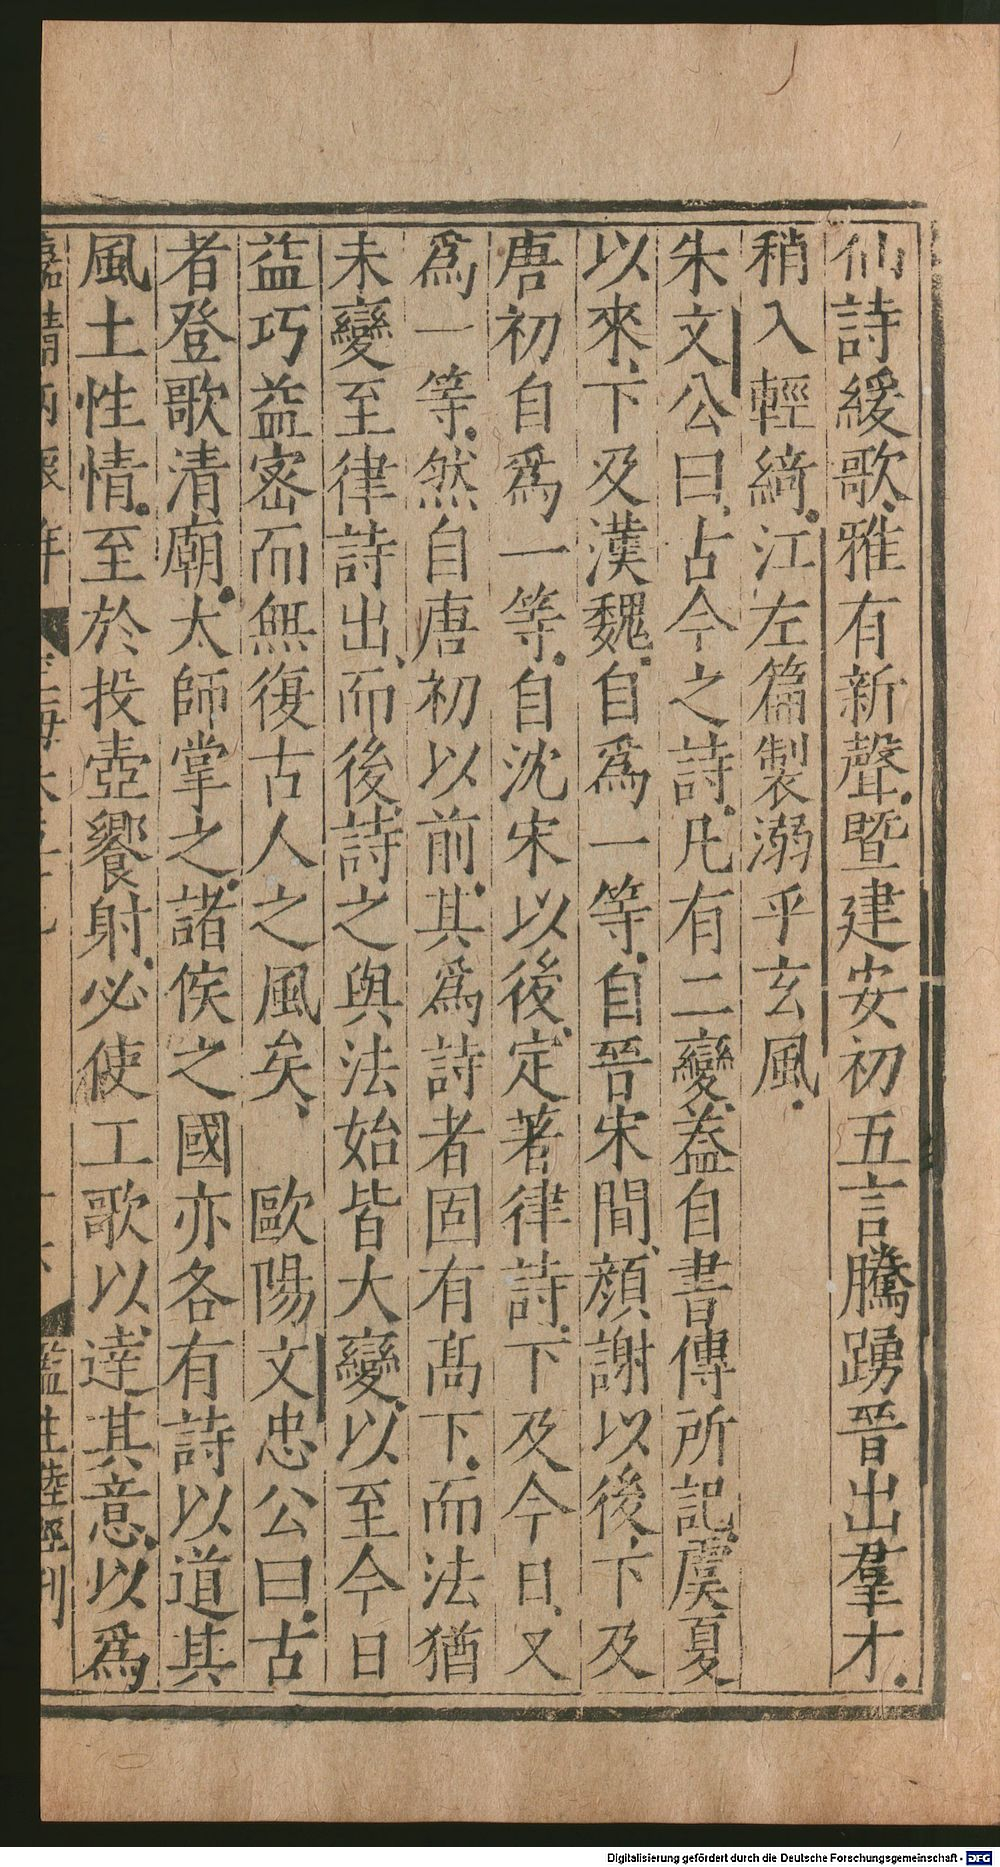 仙詩緩歌、雅有新聲。暨建安初五言騰踴晉出羣才。
稍入輕綺。江左篇製溺乎玄風。
朱文公曰、古今之詩。凡有二變。葢自書傳所記。虞夏
以來、下及漢魏。自爲一等。自晉宋間、顔謝以後、下及
唐初自爲一等。自沈宋以後、定著律詩。下及今日、又
爲一等。然自唐初以前。其爲詩者固有髙下。而法猶
未變至律詩出、而後、詩之與法始皆大變、以至今日
益巧益宻而無復古人之風矣、 歐陽文忠公曰。古
者登歌清廟。太師掌之。諸矦之國亦各有詩以道其
風土性情。至於投壺饗射。必使工歌以達其意。以爲
監生陸經刊
Digitalisierung gefördert durch die Deutsche Forschungsgemeinschaft - DFG